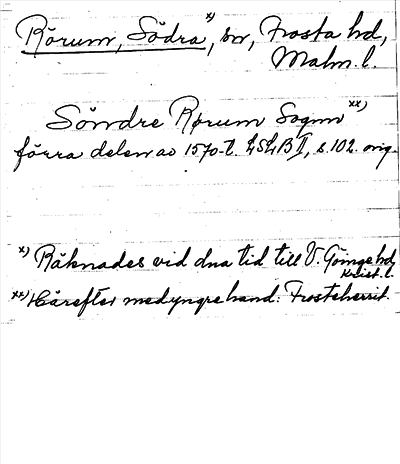 Rörum, Södra x), sn, Frosta hd,
Malm. l.
Söndre Rørum Sognn xx)
förra delen av 1570-t. LSLB II, s. 102. orig.
x) Räknades vid dna tid till V. Göinge hd
Krist. l.
xx) Härefter med yngre hand: Frosteherrit.